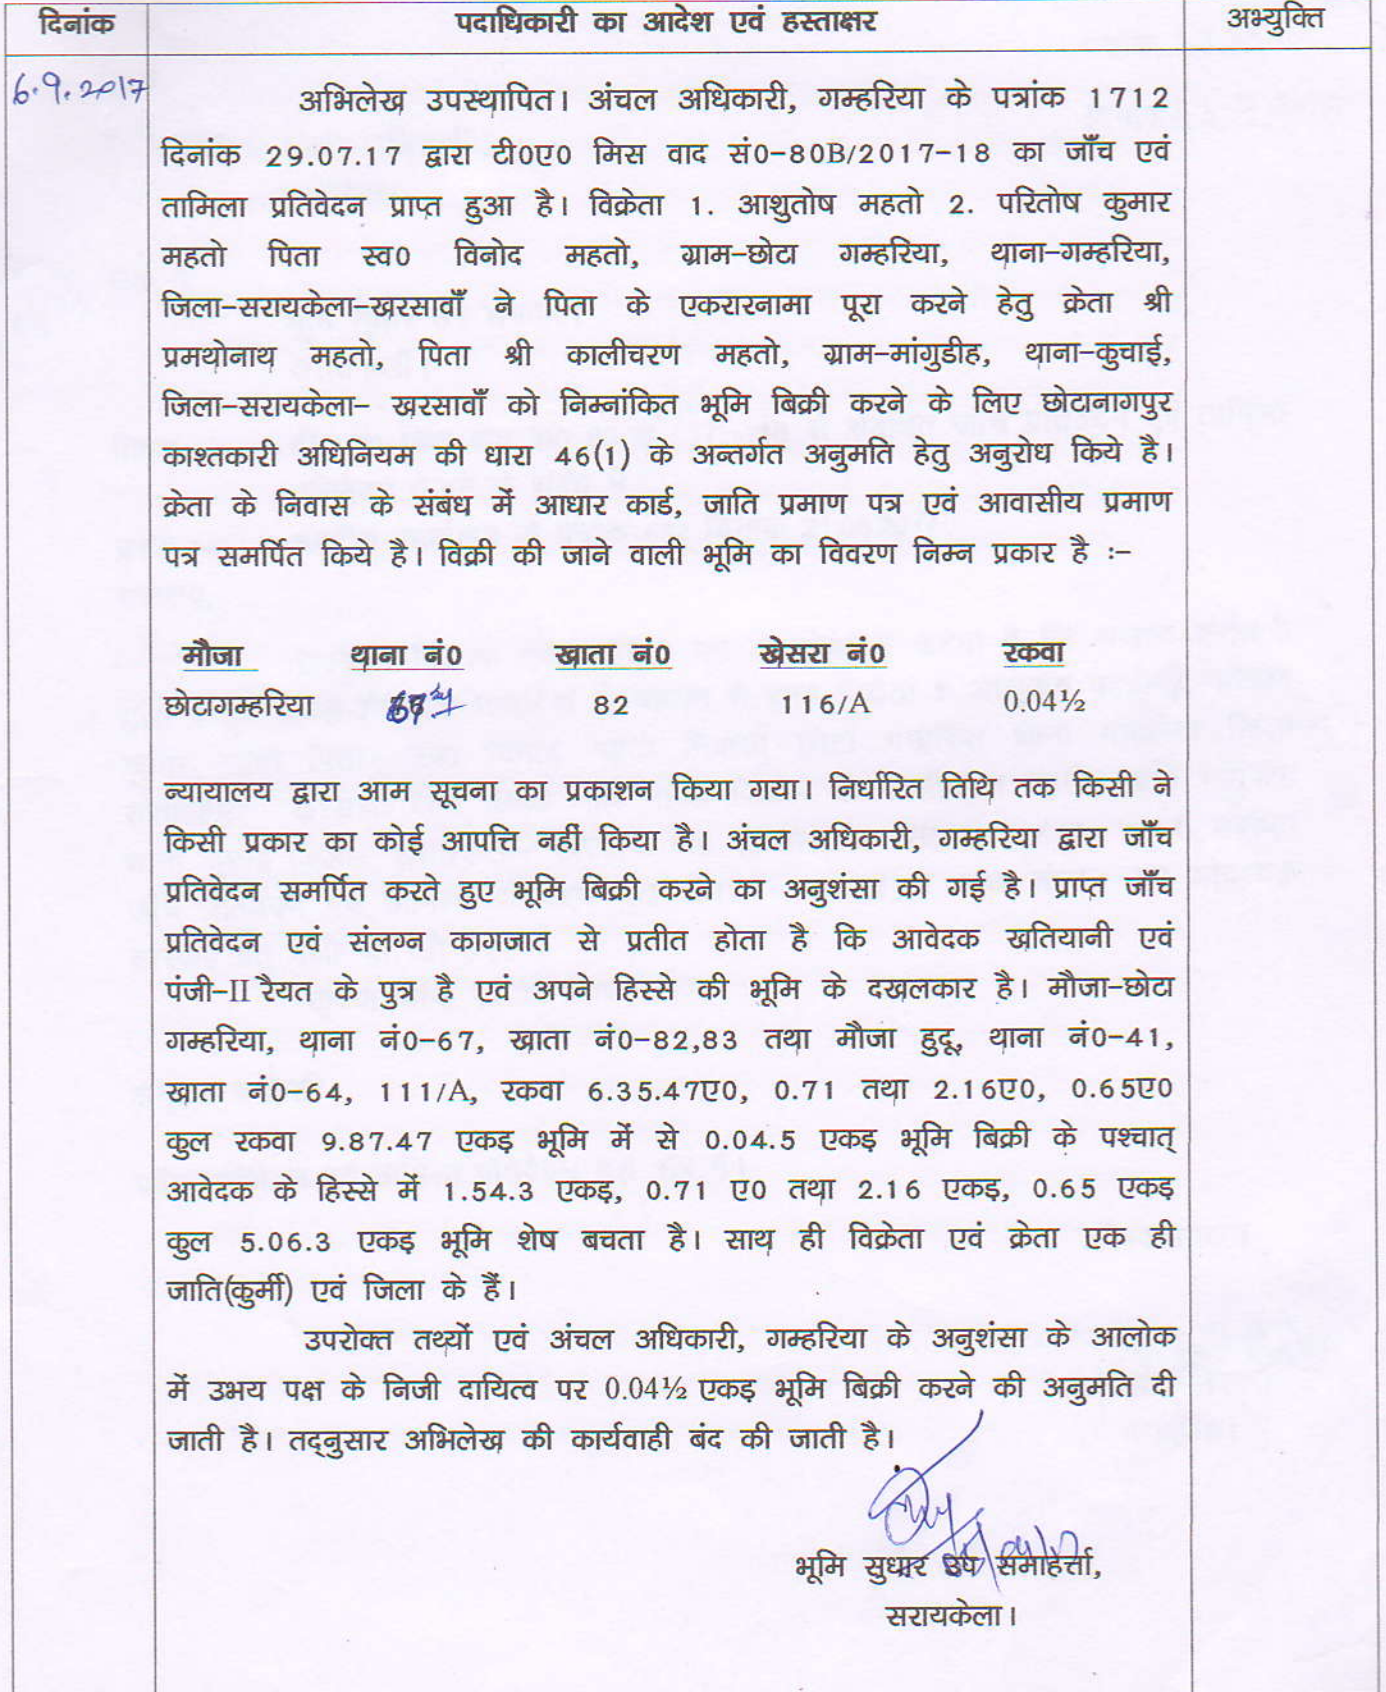 दिनांक पदाधिकारी का आदेश एवं हस्ताक्षर अभ्युक्ति
6.9.2017
अभिलेख उपस्थापित। अंचल अधिकारी, गम्हरिया के पत्रांक 1712
दिनांक 29.07.17 द्वारा टी0ए0 मिस वाद सं0-80B/2017-18 का जाँच एवं
तामिला प्रतिवेदन प्राप्त हुआ है। विक्रेता 1. आशुतोष महतो 2. परितोष कुमार
महतो पिता स्व0 विनोद महतो, ग्राम-छोटा गम्हरिया, थाना-गम्हरिया,
जिला-सरायकेला-खरसावाँ ने पिता के एकरारनामा पूरा करने हेतु क्रेता श्री
प्रमथोनाथ महतो, पिता श्री कालीचरण महतो, ग्राम-मांगुडीह, थाना-कुचाई,
जिला-सरायकेला- खरसावाँ को निम्नांकित भूमि बिक्री करने के लिए छोटानागपुर
काश्तकारी अधिनियम की धारा 46(1) के अन्तर्गत अनुमति हेतु अनुरोध किये है।
क्रेता के निवास के संबंध में आधार कार्ड, जाति प्रमाण पत्र एवं आवासीय प्रमाण
पत्र समर्पित किये है। विक्री की जाने वाली भूमि का विवरण निम्न प्रकार है :-
मौजा थाना नं0 खाता नं0 खेसरा नं0 रकवा
छोटागम्हरिया 67 82 116/A 0.04½
न्यायालय द्वारा आम सूचना का प्रकाशन किया गया। निर्धारित तिथि तक किसी ने
किसी प्रकार का कोई आपत्ति नहीं किया है। अंचल अधिकारी, गम्हरिया द्वारा जाँच
प्रतिवेदन समर्पित करते हुए भूमि बिक्री करने का अनुशंसा की गई है। प्राप्त जाँच
प्रतिवेदन एवं संलग्न कागजात से प्रतीत होता है कि आवेदक खतियानी एवं
पंजी-II रैयत के पुत्र है एवं अपने हिस्से की भूमि के दखलकार है। मौजा-छोटा
गम्हरिया, थाना नं0-67, खाता नं0-82,83 तथा मौजा हुदू, थाना नं0-41,
खाता नं0-64, 111/A, रकवा 6.35.47ए0, 0.71 तथा 2.16ए0, 0.65ए0
कुल रकवा 9.87.47 एकड़ भूमि में से 0.04.5 एकड़ भूमि बिक्री के पश्चात्
आवेदक के हिस्से में 1.54.3 एकड़, 0.71 ए0 तथा 2.16 एकड़, 0.65 एकड़
कुल 5.06.3 एकड़ भूमि शेष बचता है। साथ ही विक्रेता एवं क्रेता एक ही
जाति(कुर्मी) एवं जिला के हैं।
उपरोक्त तथ्यों एवं अंचल अधिकारी, गम्हरिया के अनुशंसा के आलोक
में उभय पक्ष के निजी दायित्व पर 0.04½ एकड़ भूमि बिक्री करने की अनुमति दी
जाती है। तद्नुसार अभिलेख की कार्यवाही बंद की जाती है।
भूमि सुधार उप समाहर्त्ता,
सरायकेला।